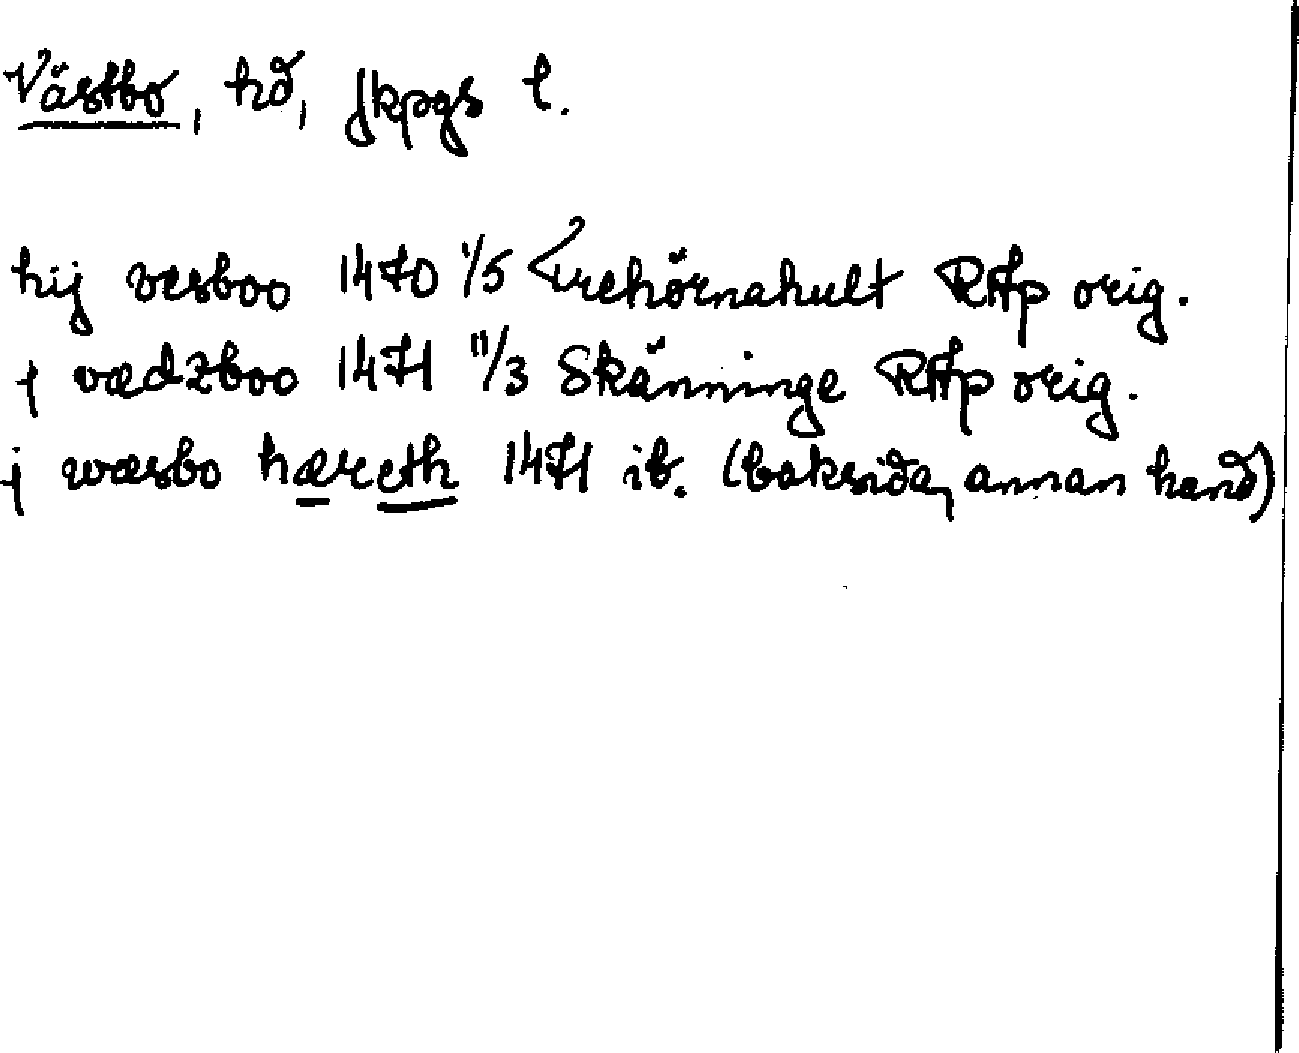 Västbo, hd, Jkpgs l.
hij vesboo 1470 1/5 Trehörnahult RAp orig.
j vædzboo 1471 11/3 Skänninge RAp orig.
j wæsbo hæreth 1471 ib. (baksida, annan hand)